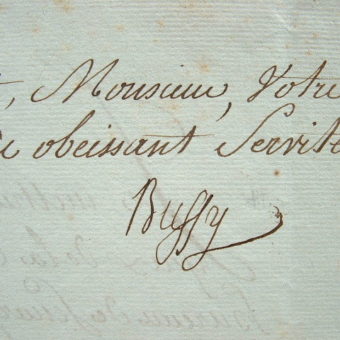 , Monsieur, Votre
obeissant Servite
Bussy